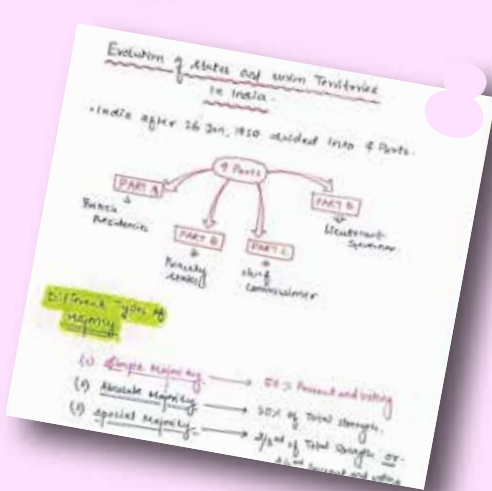 Evolution of states and union Territories
in India.
• India after 26 Jan, 1950 divided into 4 Parts.
4 Parts
PART A
British
Presidencies
PART B
Princely
States
PART C
chief
commissioner
PART D
Lieutenant
Governor
Different Types of
Majority
(1) Simple Majority → 50% Present and voting
(2) Absolute Majority → 50% of Total strength.
(3) Special Majority → 2/3rd of Total strength or
2/3rd present and voting